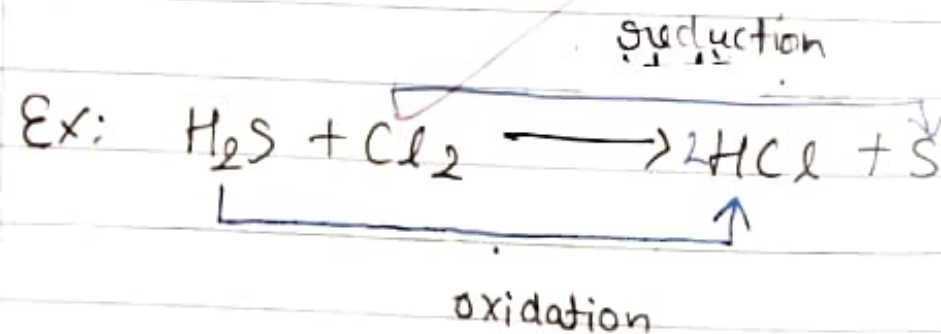 reduction
Ex: H₂S + Cl₂ ⟶ 2HCl + S
oxidation